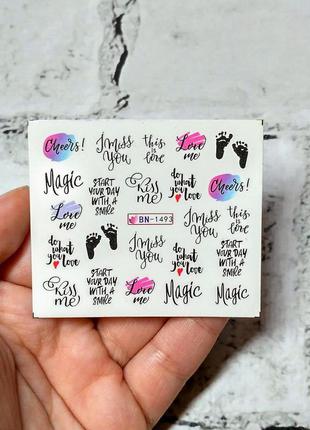 Cheers!
I miss
You
this
is
love
Love
me
Magic
START
YOUR DAY
WITH A
SMILE
Kiss
me
do
what
you
love
Cheers!
Love
me
BN-1493
I miss
You
this
is
love
do
what
you
love
I miss
You
do
what
you
love
START
YOUR DAY
WITH A
SMILE
START
YOUR DAY
WITH A
SMILE
Kiss
me
Love
me
Magic
Magic